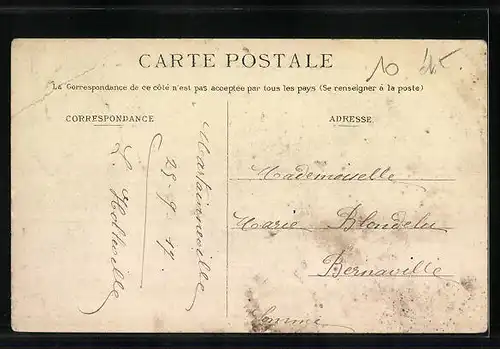 CARTE POSTALE
10
La Correspondance de ce côté n'est pas acceptée par tous les pays (Se renseigner à la poste)
CORRESPONDANCE
ADRESSE
Martainneville
25-9-17.
L. Holleville
Mademoiselle
Marie Blondelu
Bernaville
Somme